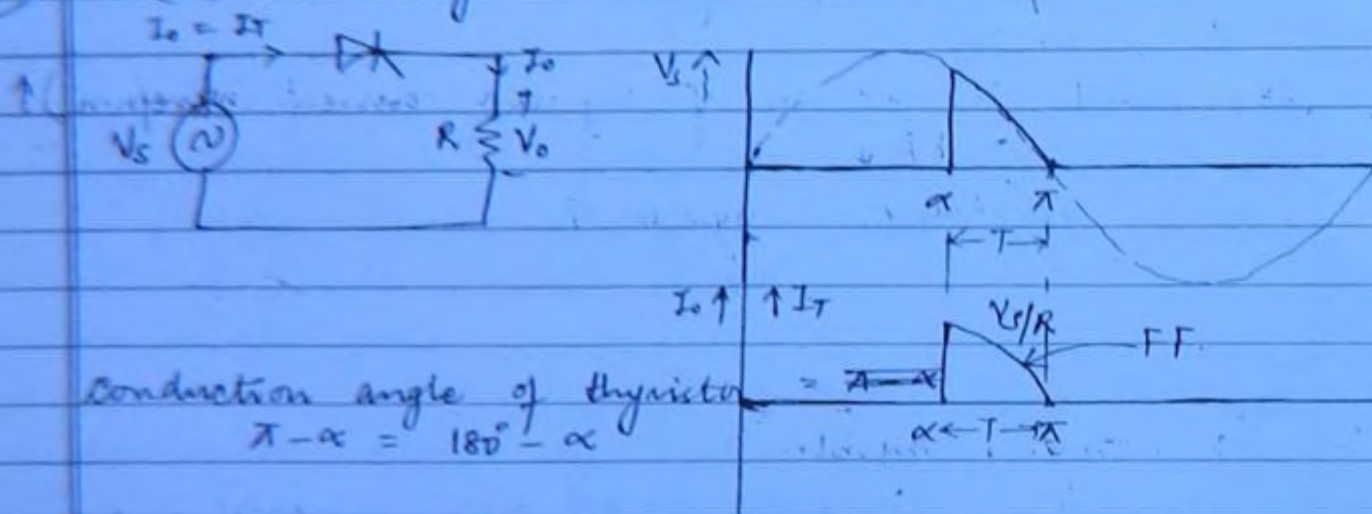 I₀ = I_T
I₀
V_S
R
V₀
V_S ↑
α
π
← T →
I₀ ↑ ↑ I_T
V_S/R
F F.
conduction angle of thyristor =
π - α = 180° - α
α ← T → π